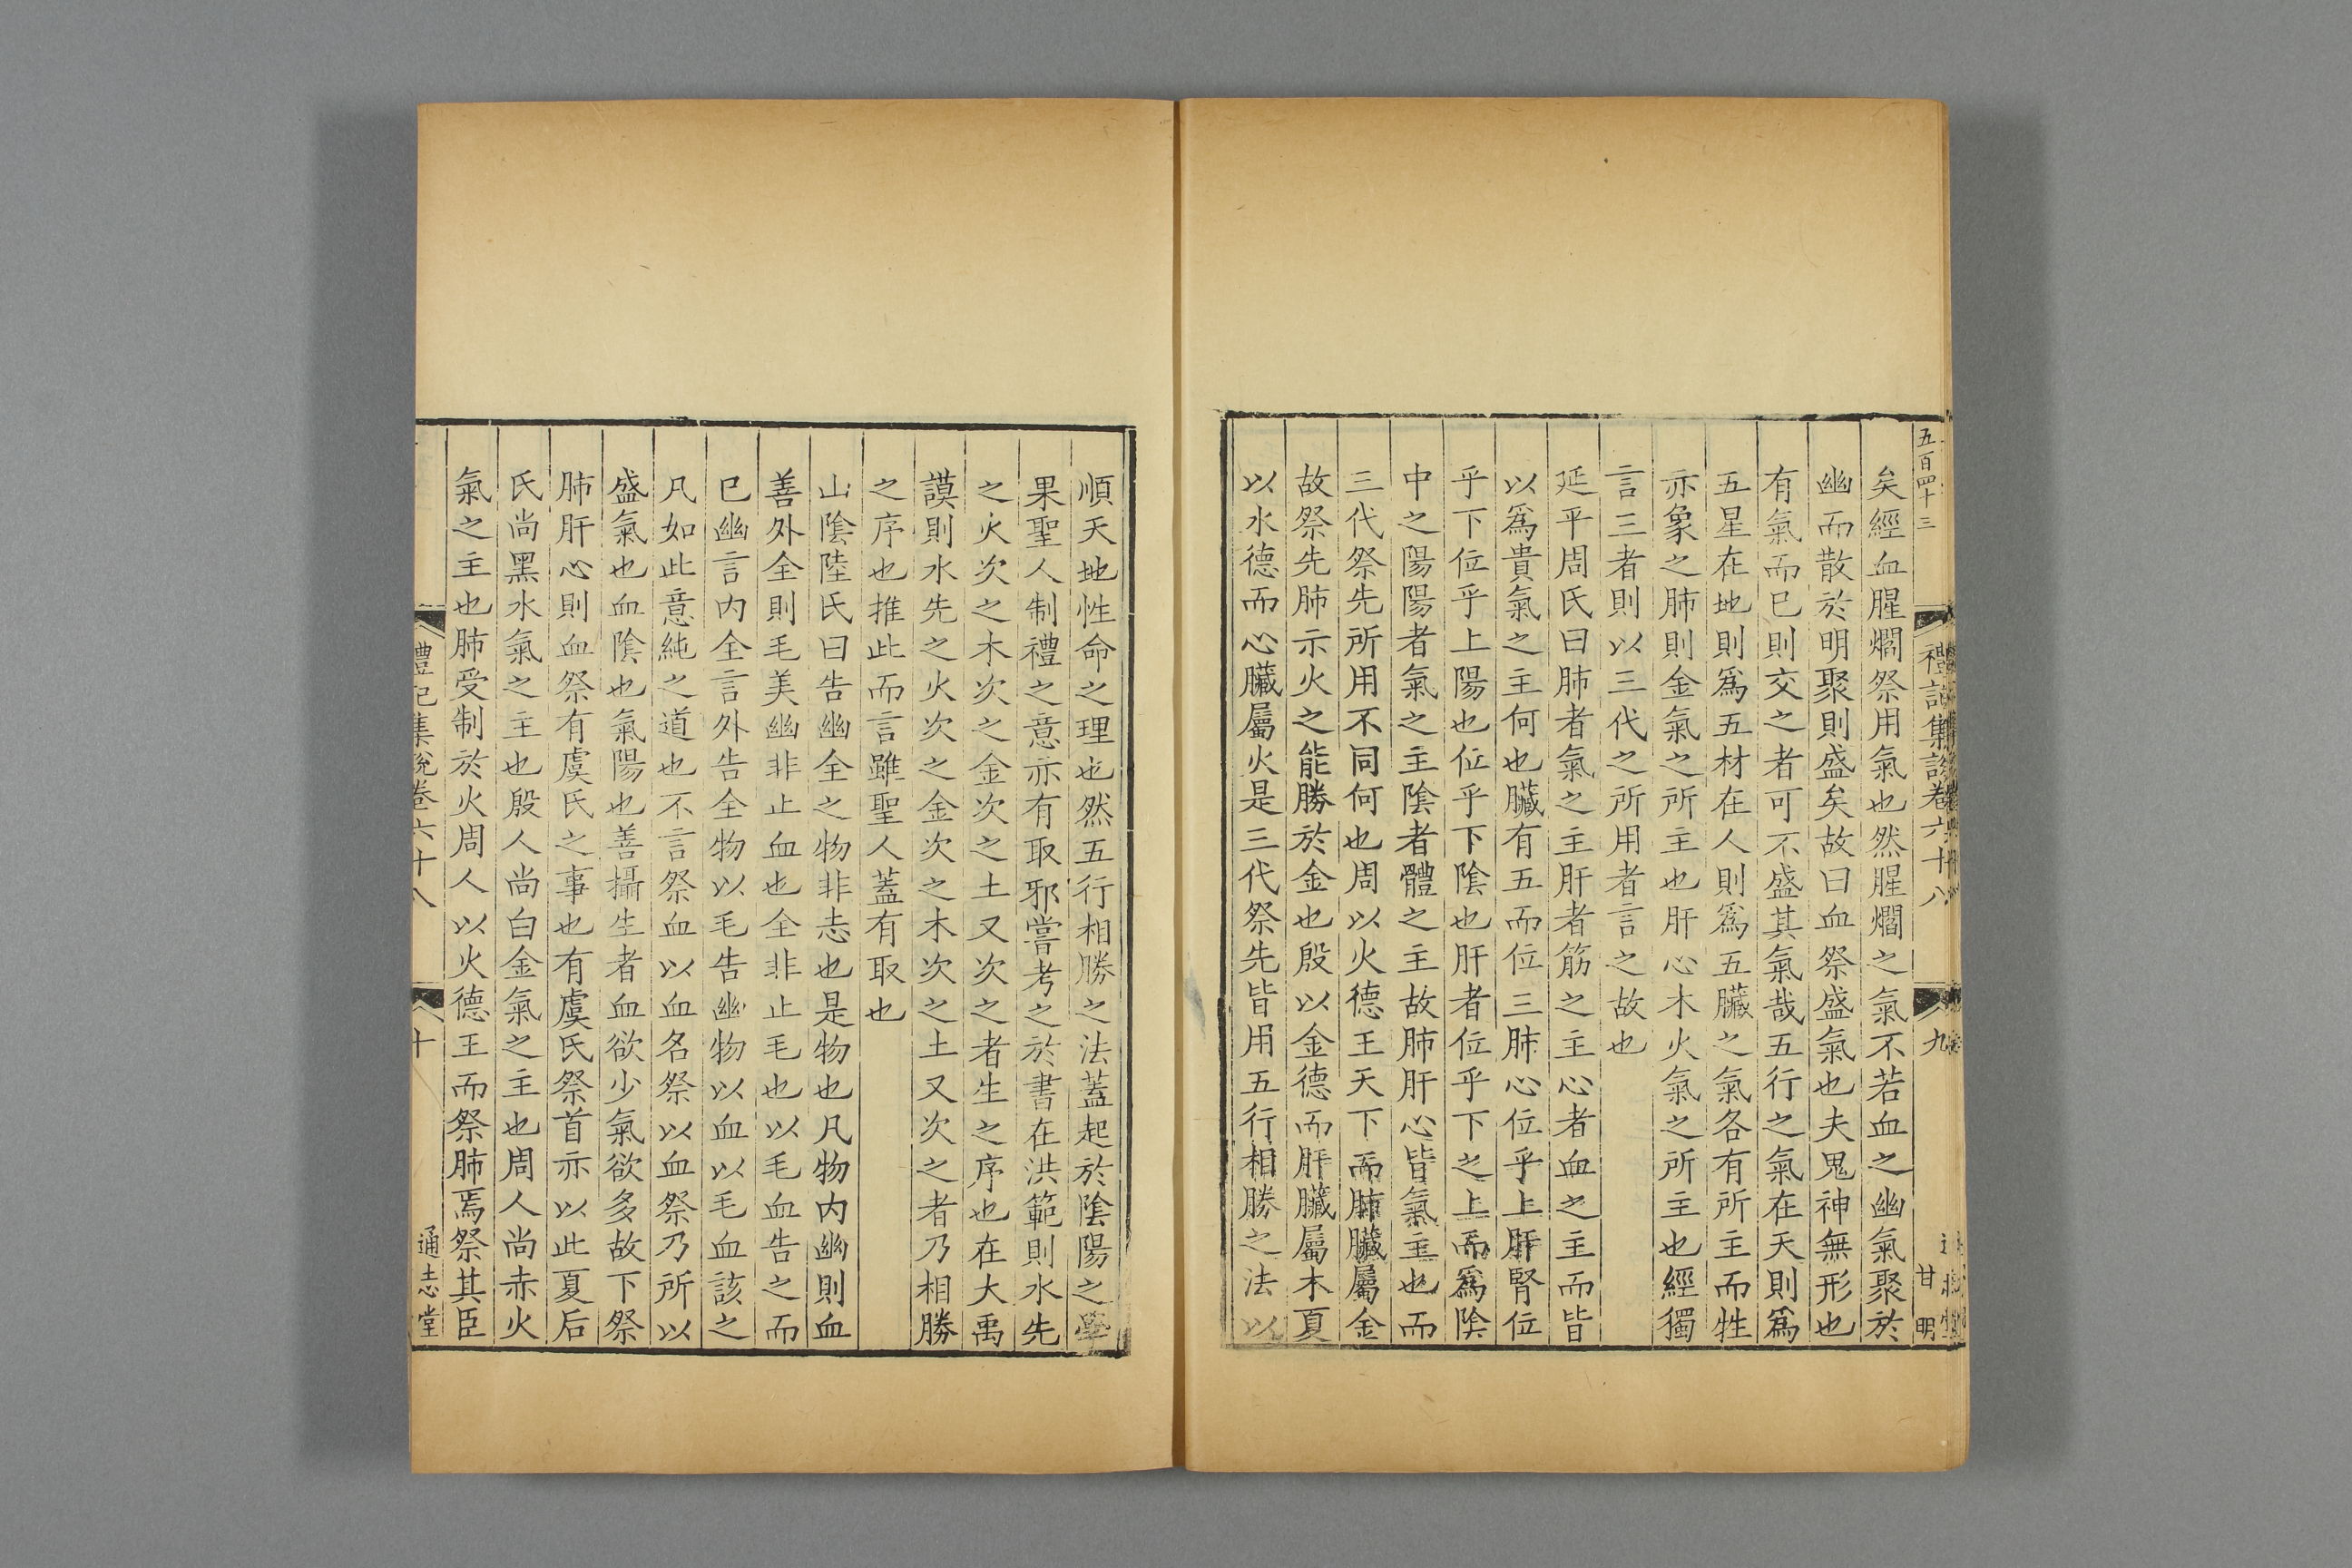 五百四十三
禮記集說卷六十八
九
甘明
矣經血腥爓祭用氣也然腥爓之氣不若血之幽氣聚於
幽而散於明聚則盛矣故曰血祭盛氣也夫鬼神無形也
有氣而已則交之者可不盛其氣哉五行之氣在天則爲
五星在地則爲五材在人則爲五臟之氣各有所主而牲
亦象之肺則金氣之所主也肝心木火氣之所主也經獨
言三者則以三代之所用者言之故也
延平周氏曰肺者氣之主肝者筋之主心者血之主而皆
以爲貴氣之主何也臟有五而位三肺心位乎上肝腎位
乎下位乎上陽也位乎下陰也肝者位乎下之上而爲陰
中之陽陽者氣之主陰者體之主故肺肝心皆氣主也而
三代祭先所用不同何也周以火德王天下而肺臟屬金
故祭先肺示火之能勝於金也殷以金德而肝臟屬木夏
以水德而心臟屬火是三代祭先皆用五行相勝之法以
順天地性命之理也然五行相勝之法蓋起於陰陽之學
果聖人制禮之意亦有取邪嘗考之於書在洪範則水先
之火次之木次之金次之土又次之者生之序也在大禹
謨則水先之火次之金次之木次之土又次之者乃相勝
之序也推此而言雖聖人蓋有取也
山陰陸氏曰告幽全之物非志也是物也凡物内幽則血
善外全則毛美幽非止血也全非止毛也以毛血告之而
已幽言内全言外告全物以毛告幽物以血以毛血該之
凡如此意純之道也不言祭血以血名祭以血祭乃所以
盛氣也血陰也氣陽也善攝生者血欲少氣欲多故下祭
肺肝心則血祭有虞氏之事也有虞氏祭首亦以此夏后
氏尚黑水氣之主也殷人尚白金氣之主也周人尚赤火
氣之主也肺受制於火周人以火德王而祭肺焉祭其臣
禮記集說卷六十八
十
通志堂